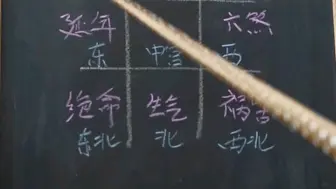 延年 六煞
东 中宫 西
绝命 生气 祸害
东北 北 西北